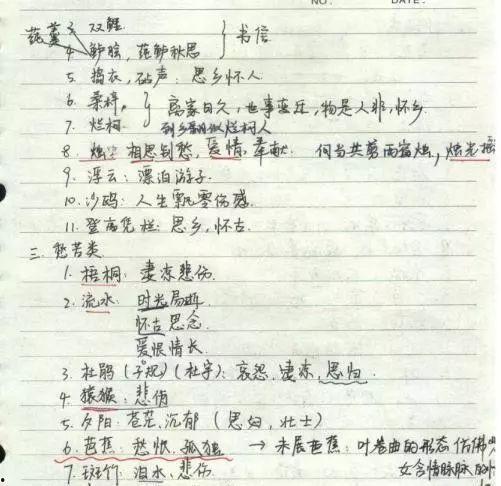 NO. DATE.
莼羹 3. 双鲤
4. 鲈脍, 莼鲈秋思 } 书信
5. 捣衣, 砧声: 思乡怀人
6. 桑梓, } 离家日久, 世事变迁, 物是人非, 怀乡
7. 烂柯 到乡翻似烂柯人
8. 烛: 相思别愁, 爱情, 奉献. 何当共剪西窗烛, 烛光
9. 浮云: 漂泊游子.
10. 沙鸥: 人生飘零伤感.
11. 登高凭栏: 思乡, 怀古.
三. 愁苦类
1. 梧桐: 凄凉悲伤.
2. 流水: 时光易逝
怀古思念.
爱恨情长
3. 杜鹃 (子规) (杜宇): 哀怨, 凄凉, 思归.
4. 猿猴: 悲伤
5. 夕阳: 苍茫, 沉郁 (思妇, 壮士)
6. 芭蕉: 愁恨, 孤独 → 未展芭蕉: 叶卷曲的形态仿佛
7. 斑竹: 泪水, 悲伤. 女含情脉脉的